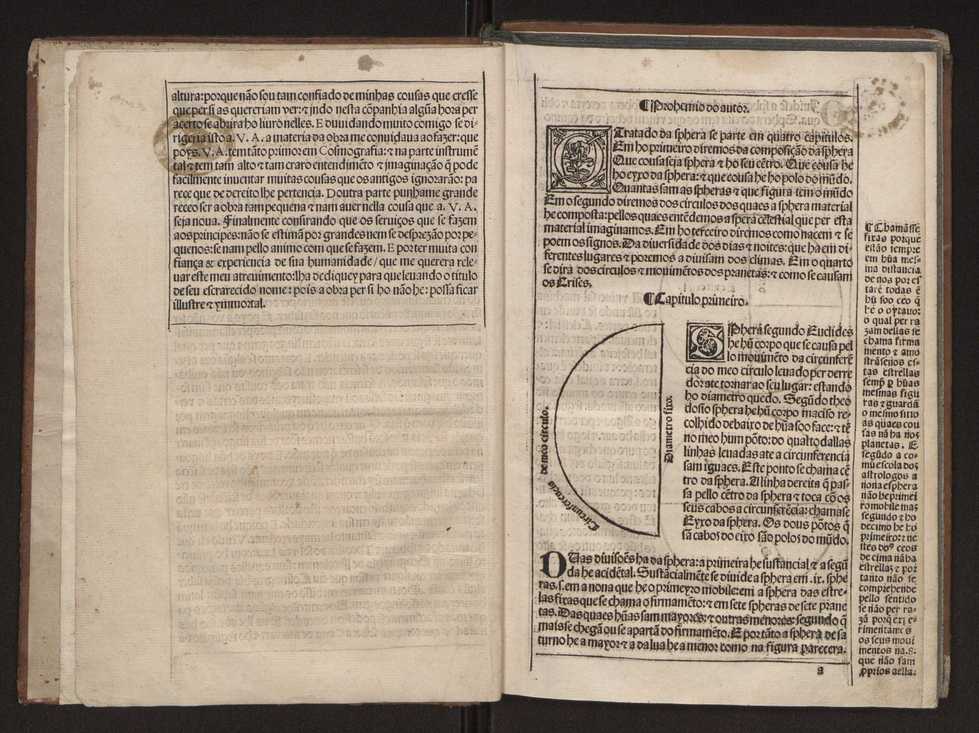 altura: porque não sou tam confiado de minhas cousas que cresse
que per si as quereriam ver: ⁊ jndo nesta cõpanhia algũa hora per
acerto se abrira ho liuro nelles. E duuidando muito comigo se di-
rigeria isto a. V. A. a materia da obra me conuidaua ao fazer: que
poys. V. A. tem tãto primor em Cosmografia: ⁊ na parte instrumẽ
tal: ⁊ tem tam alto ⁊ tam craro entendimẽto ⁊ imaginação q̃ pode
facilmente inuentar muitas cousas que os antigos ignorarão: pa
rece que de dereito lhe pertencia. Doutra parte punhame grande
receo ser a obra tam pequena ⁊ nam auer nella cousa que a. V. A.
seja noua. Finalmente consirando que os seruiços que se fazem
aos principes: não se estimã por grandes nem se desprezão por pe-
quenos: se nam pello animo com que se fazem. E por ter muita con
fiança ⁊ experiencia de sua humanidade / que me querera rele-
uar este meu atreuimento: lha dediquey para que leuando o titulo
de seu escrarecido nome: pois a obra per si ho não he: possa ficar
illustre ⁊ ynmortal.
¶ Prohemio do autor.
O Tratado da sphera se parte em quatro capitulos.
Em ho primeiro diremos da composição da sphera
Que cousa seja sphera ⁊ ho seu cẽtro. Que cousa he
ho exo da sphera: ⁊ que cousa he ho polo do mũdo.
Quantas sam as spheras ⁊ que figura tem o mũdo
Em o segundo diremos dos circulos dos quaes a sphera material
he composta: pellos quaes entẽdemos a spera celestial que per esta
material imaginamos. Em ho terceiro diremos como nacem ⁊ se
poem os signos. Da diuersidade dos dias ⁊ noites: que ha em di-
ferentes lugares ⁊ poremos a diuisam dos climas. Em o quarto
se dira dos circulos ⁊ mouimẽtos dos pranetas: ⁊ como se causam
os Crises.
¶ Capitulo primeiro.
SPhera segundo Euclides
he hũ corpo que se causa pel
lo mouimẽto da circunferẽ
cia do meo circulo leuado per derre
dor: ate tornar ao seu lugar: estando
ho diametro quedo. Segũdo theo
dosio sphera he hũ corpo maciso re-
colhido debaixo de hũa soo face: ⁊ tẽ
no meo hum põto: do qual todallas
linhas leuadas ate a circunferencia
sam iguaes. Este ponto se chama cẽ
tro da sphera. A linha dereita q̃ pas-
sa pello cẽtro da sphera ⁊ toca cõ os
seus cabos a circunferẽcia: chamase
Exo da sphera. Os dous põtos q̃
sã cabos do eixo são polos do mũdo.
Circunferencia de meo circulo.
Diametro fixo.
DUas diuisoẽs ha da sphera: a primeira he sustancial ⁊ a segũ
da he acidẽtal. Sustãcialmẽte se diuide a sphera em. ix. sphe
ras. s. em a nona que he o primeyro mobile: em a sphera das estre-
las fixas que se chama o firmamẽto: ⁊ em sete spheras de sete prane
tas. Das quaes hũas sam mayores: ⁊ outras menores: segundo q̃
mais se chegã ou se apartã do firmamẽto. E portãto a sphera de sa
turno he a mayor ⁊ a da lua he a menor como na figura parecera.
a
¶ Chamãsse
fixas porque
estão sempre
em hũa mes-
ma distancia
de nos por es
tarẽ todas ẽ
hũ soo ceo q̃
he o oytauo:
o qual per ra
zam dellas se
chama firma
mento ⁊ amo
strãse nos es-
tas estrellas
semp̃ ꝑ hũas
mesmas figu
ras ⁊ guardã
o mesmo sitio
as quaes cou
sas nã ha nos
planetas. E
segũdo a co-
mũ escola dos
astrologos a
nona esphera
não he primei
ro mobile mas
segundo ⁊ ho
decimo he ho
primeiro: ⁊ ne
stes dous ceos
de cima nã ha
estrellas ⁊ por
tanto não se
comprehende
pello sentido
se não per ra-
zã porq̃ exꝑe-
rimentamos
os seus moui
mentos na. 8.
que não sam
proprios della.